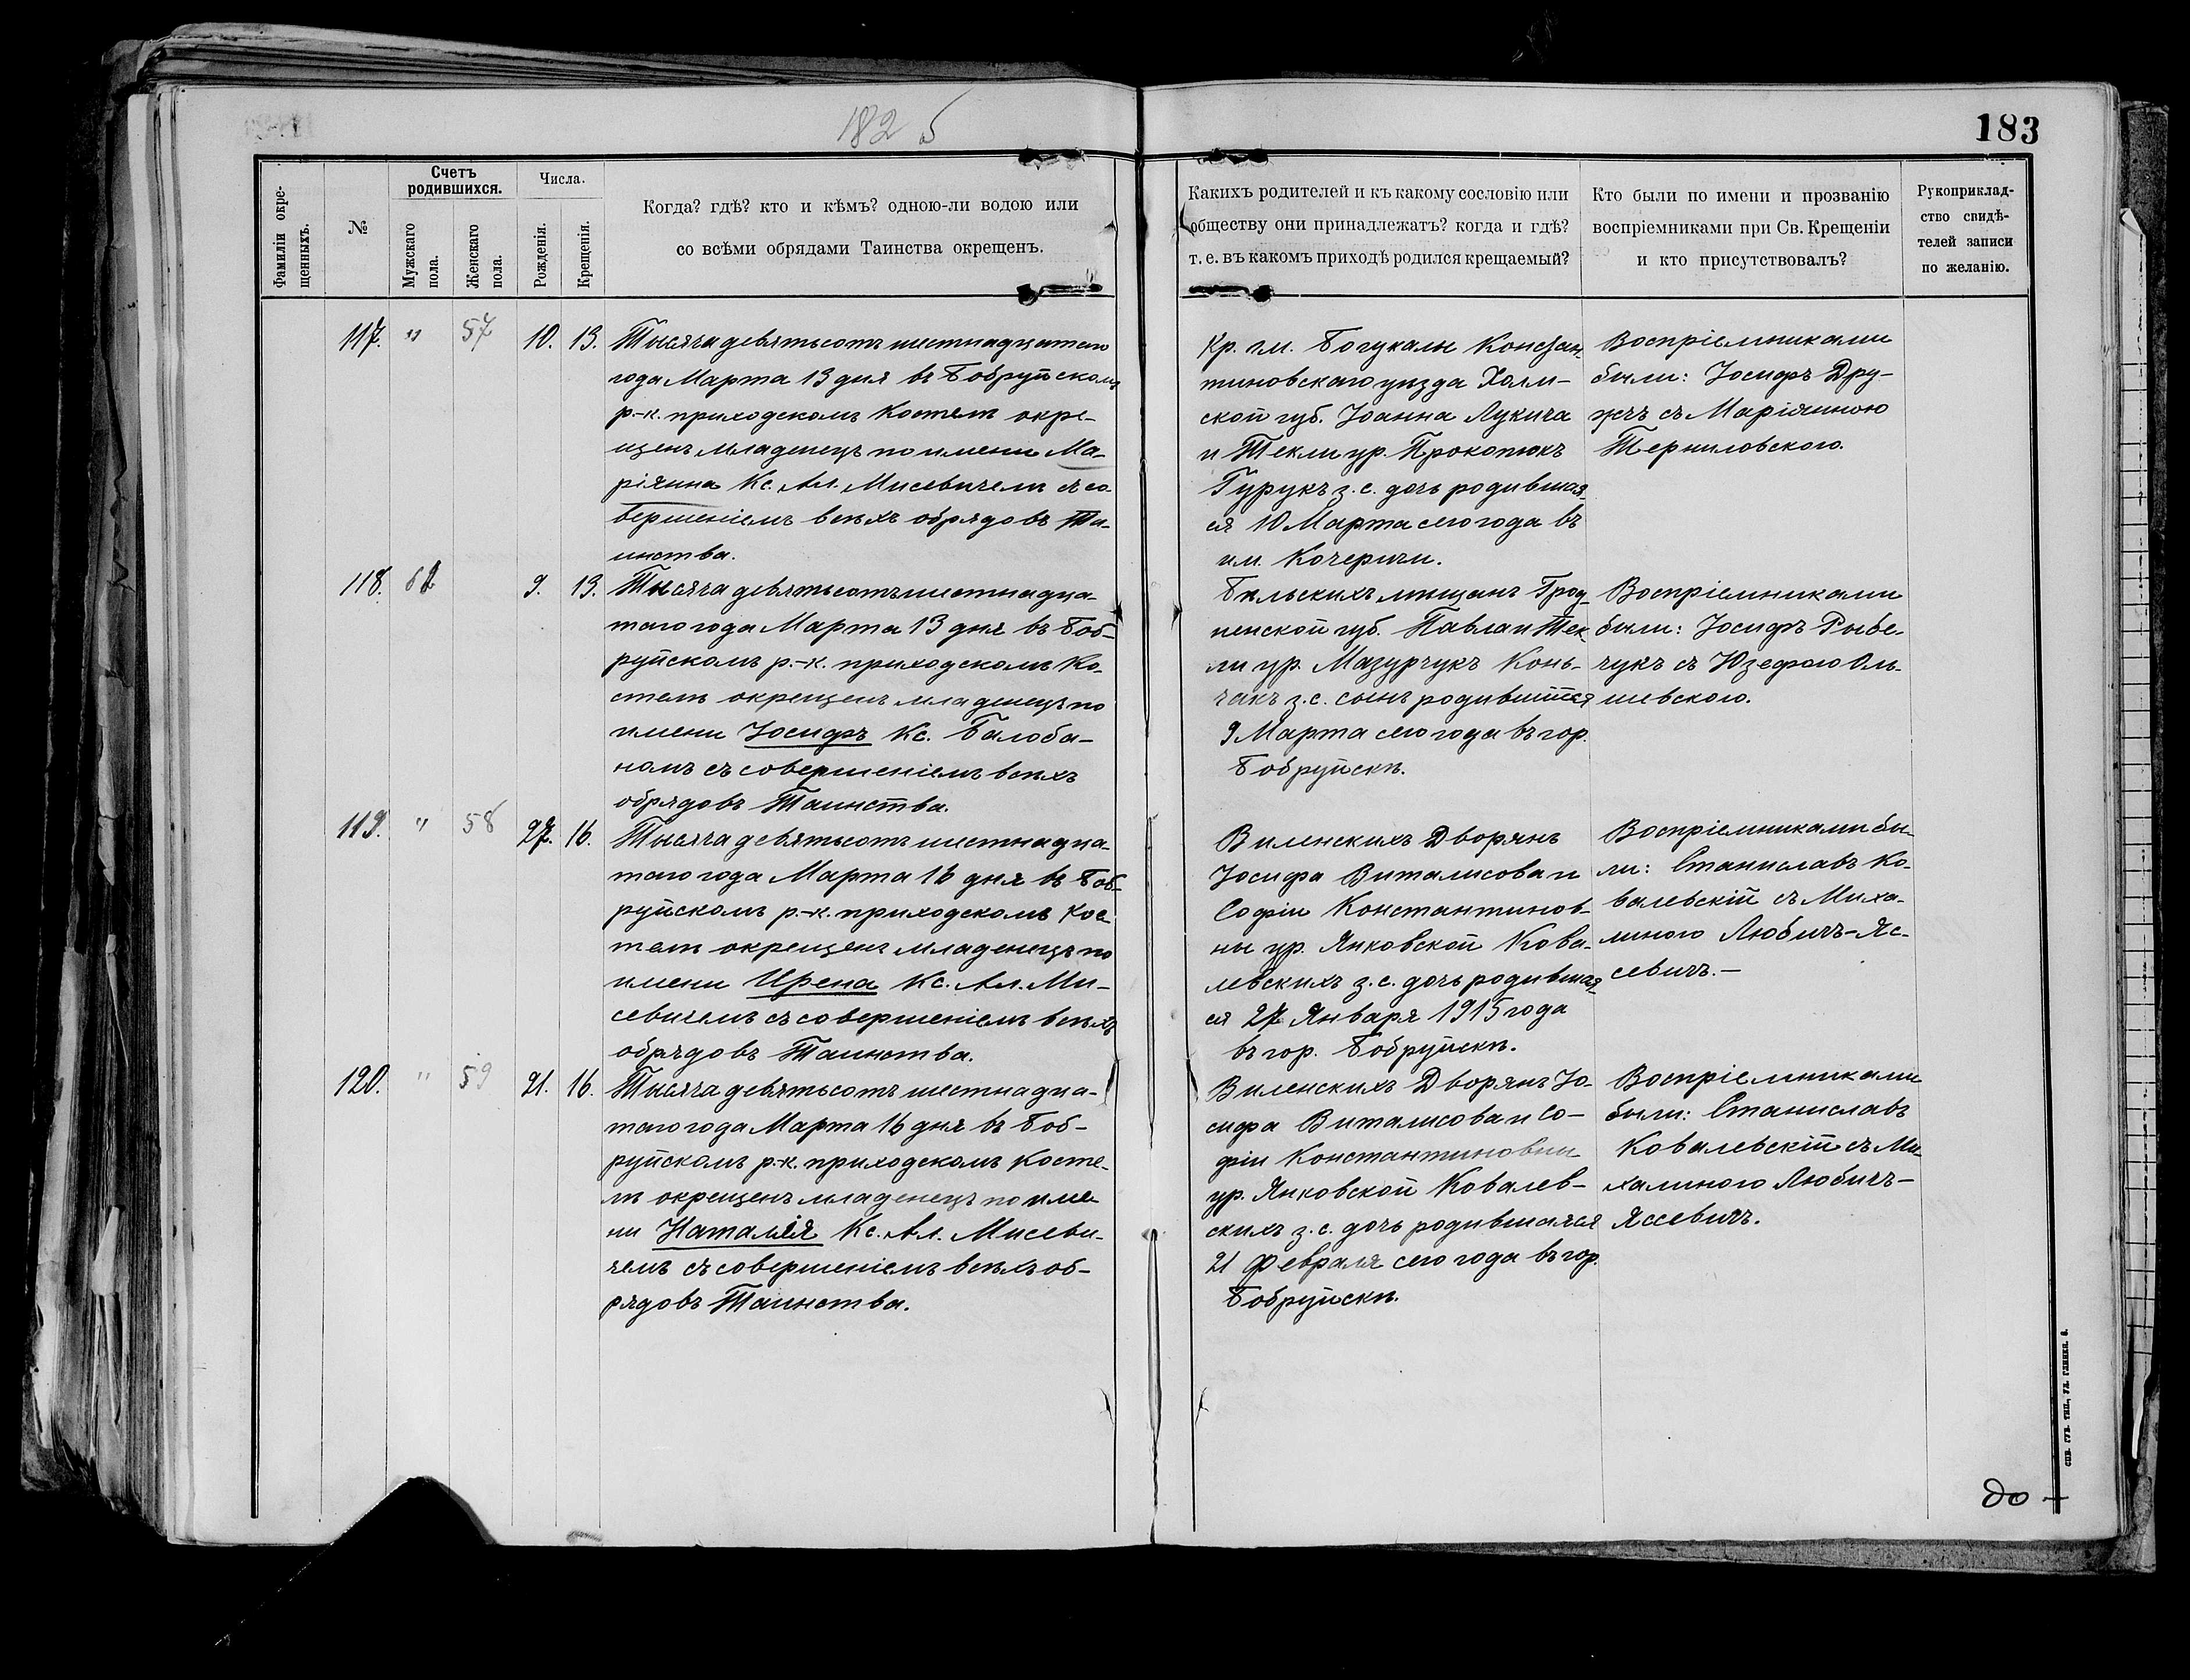 182 б
183
Фамиліи окре-
щенныхъ.
№
Счетъ
родившихся.
Мужскаго
пола.
Женскаго
пола.
Числа.
Рожденія.
Крещенія.
Когда? гдѣ? кто и кѣмъ? одною-ли водою или
со всѣми обрядами Таинства окрещенъ.
Какихъ родителей и къ какому сословію или
обществу они принадлежатъ? когда и гдѣ?
т. е. въ какомъ приходѣ родился крещаемый?
Кто были по имени и прозванію
воспріемниками при Св. Крещеніи
и кто присутствовалъ?
Рукоприклад-
ство свидѣ-
телей записи
по желанію.
117. " 57 10. 13.
Тысяча девятьсотъ шестнадцатаго
года Марта 13 дня въ Бобруйскомъ
р.-к. приходскомъ Костелѣ окре-
щенъ младенецъ по имени Ма-
ріянна Кс. Ал. Мисевичемъ съ со-
вершеніемъ всѣхъ обрядовъ Та-
инства.
Кр. гм. Богукалы Констан-
тиновскаго уѣзда Холм-
ской губ. Іоанна Лукича
и Текли ур. Прокопюкъ
Гурукъ з. с. дочь родившая-
ся 10 Марта сего года въ
им. Кочеричи.
Воспріемниками
были: Іосифъ Дру-
жчъ съ Маріянною
Терниловскою.
118. 62 9. 13.
Тысяча девятьсотъ шестнадца-
таго года Марта 13 дня въ Боб-
руйскомъ р.-к. приходскомъ Ко-
стелѣ окрещенъ младенецъ по
имени Іосифъ Кс. Балоба-
номъ съ совершеніемъ всѣхъ
обрядовъ Таинства.
Бѣльскихъ мѣщанъ Грод-
ненской губ. Павла и Тек-
ли ур. Мазурчукъ Конь-
чакъ з. с. сынъ родившійся
9 Марта сего года въ гор.
Бобруйскѣ.
Воспріемниками
были: Іосифъ Рыбе-
чукъ съ Юзефою Оль-
шевскою.
119. " 58 27. 16.
Тысяча девятьсотъ шестнадца-
таго года Марта 16 дня въ Боб-
руйскомъ р.-к. приходскомъ Кос-
телѣ окрещенъ младенецъ по
имени Ирена Кс. Ал. Ми-
севичемъ съ совершеніемъ всѣхъ
обрядовъ Таинства.
Виленскихъ Дворянъ
Іосифа Виталисова и
Софіи Константинов-
ны ур. Янковской Кова-
левскихъ з. с. дочь родившая-
ся 27 Января 1915 года
въ гор. Бобруйскѣ.
Воспріемниками бы-
ли: Станиславъ Ко-
валевскій съ Миха-
линою Любичъ-Яс-
севичъ.—
120. " 59 21. 16.
Тысяча девятьсотъ шестнадца-
таго года Марта 16 дня въ Боб-
руйскомъ р.-к. приходскомъ Косте-
лѣ окрещенъ младенецъ по име-
ни Наталія Кс. Ал. Мисеви-
чемъ съ совершеніемъ всѣхъ об-
рядовъ Таинства.
Виленскихъ Дворянъ Іо-
сифа Виталисова и Со-
фіи Константиновны
ур. Янковской Ковалев-
скихъ з. с. дочь родившаяся
21 Февраля сего года въ гор.
Бобруйскѣ.
Воспріемниками
были: Станиславъ
Ковалевскій съ Ми-
халиною Любичъ-
Яссевичъ.
до
СПБ. ГУБ. ТИП., УЛ. ГЛИНКИ. 8.